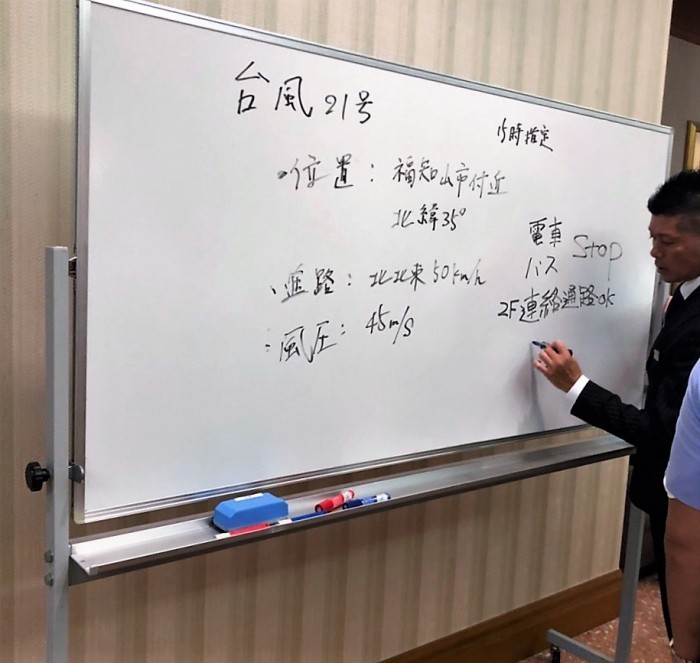 台風21号
15時指定
・位置: 福知山市付近
北緯35°
・進路: 北北東50km/h
・風圧: 45m/s
電車
バス
Stop
2F連絡通路ok